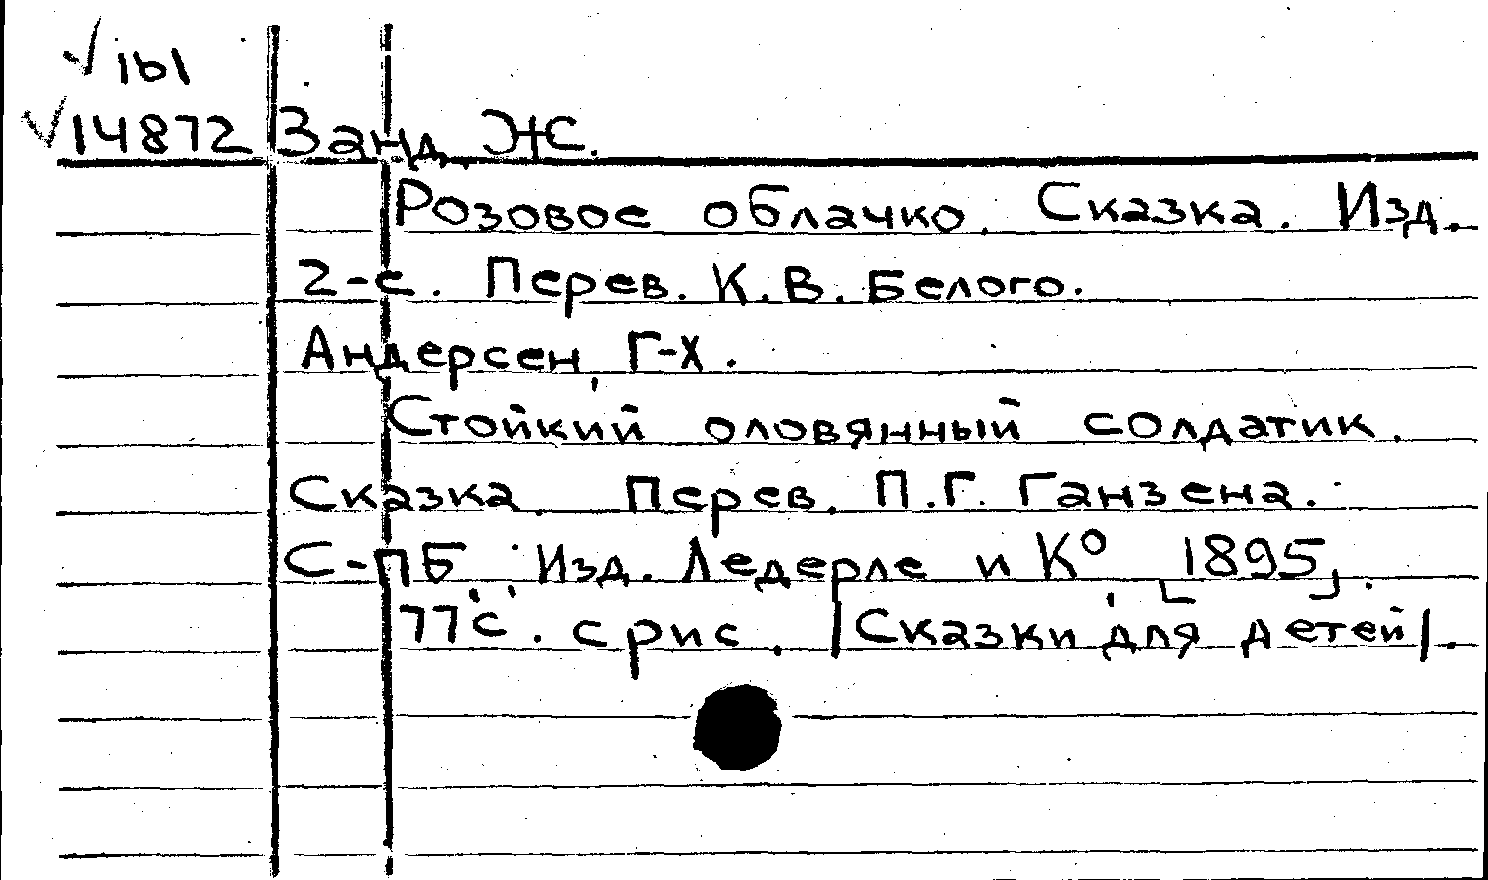 √ 161
√ 14872 Занд, Ж.
Розовое облачко. Сказка. Изд.
2-е. Перев. К.В. Белого.
Андерсен, Г-Х.
Стойкий оловянный солдатик.
Сказка. Перев. П.Г. Ганзена.
С-ПБ, Изд. Ледерле и К° [1895].
77с. с рис. /Сказки для детей/.